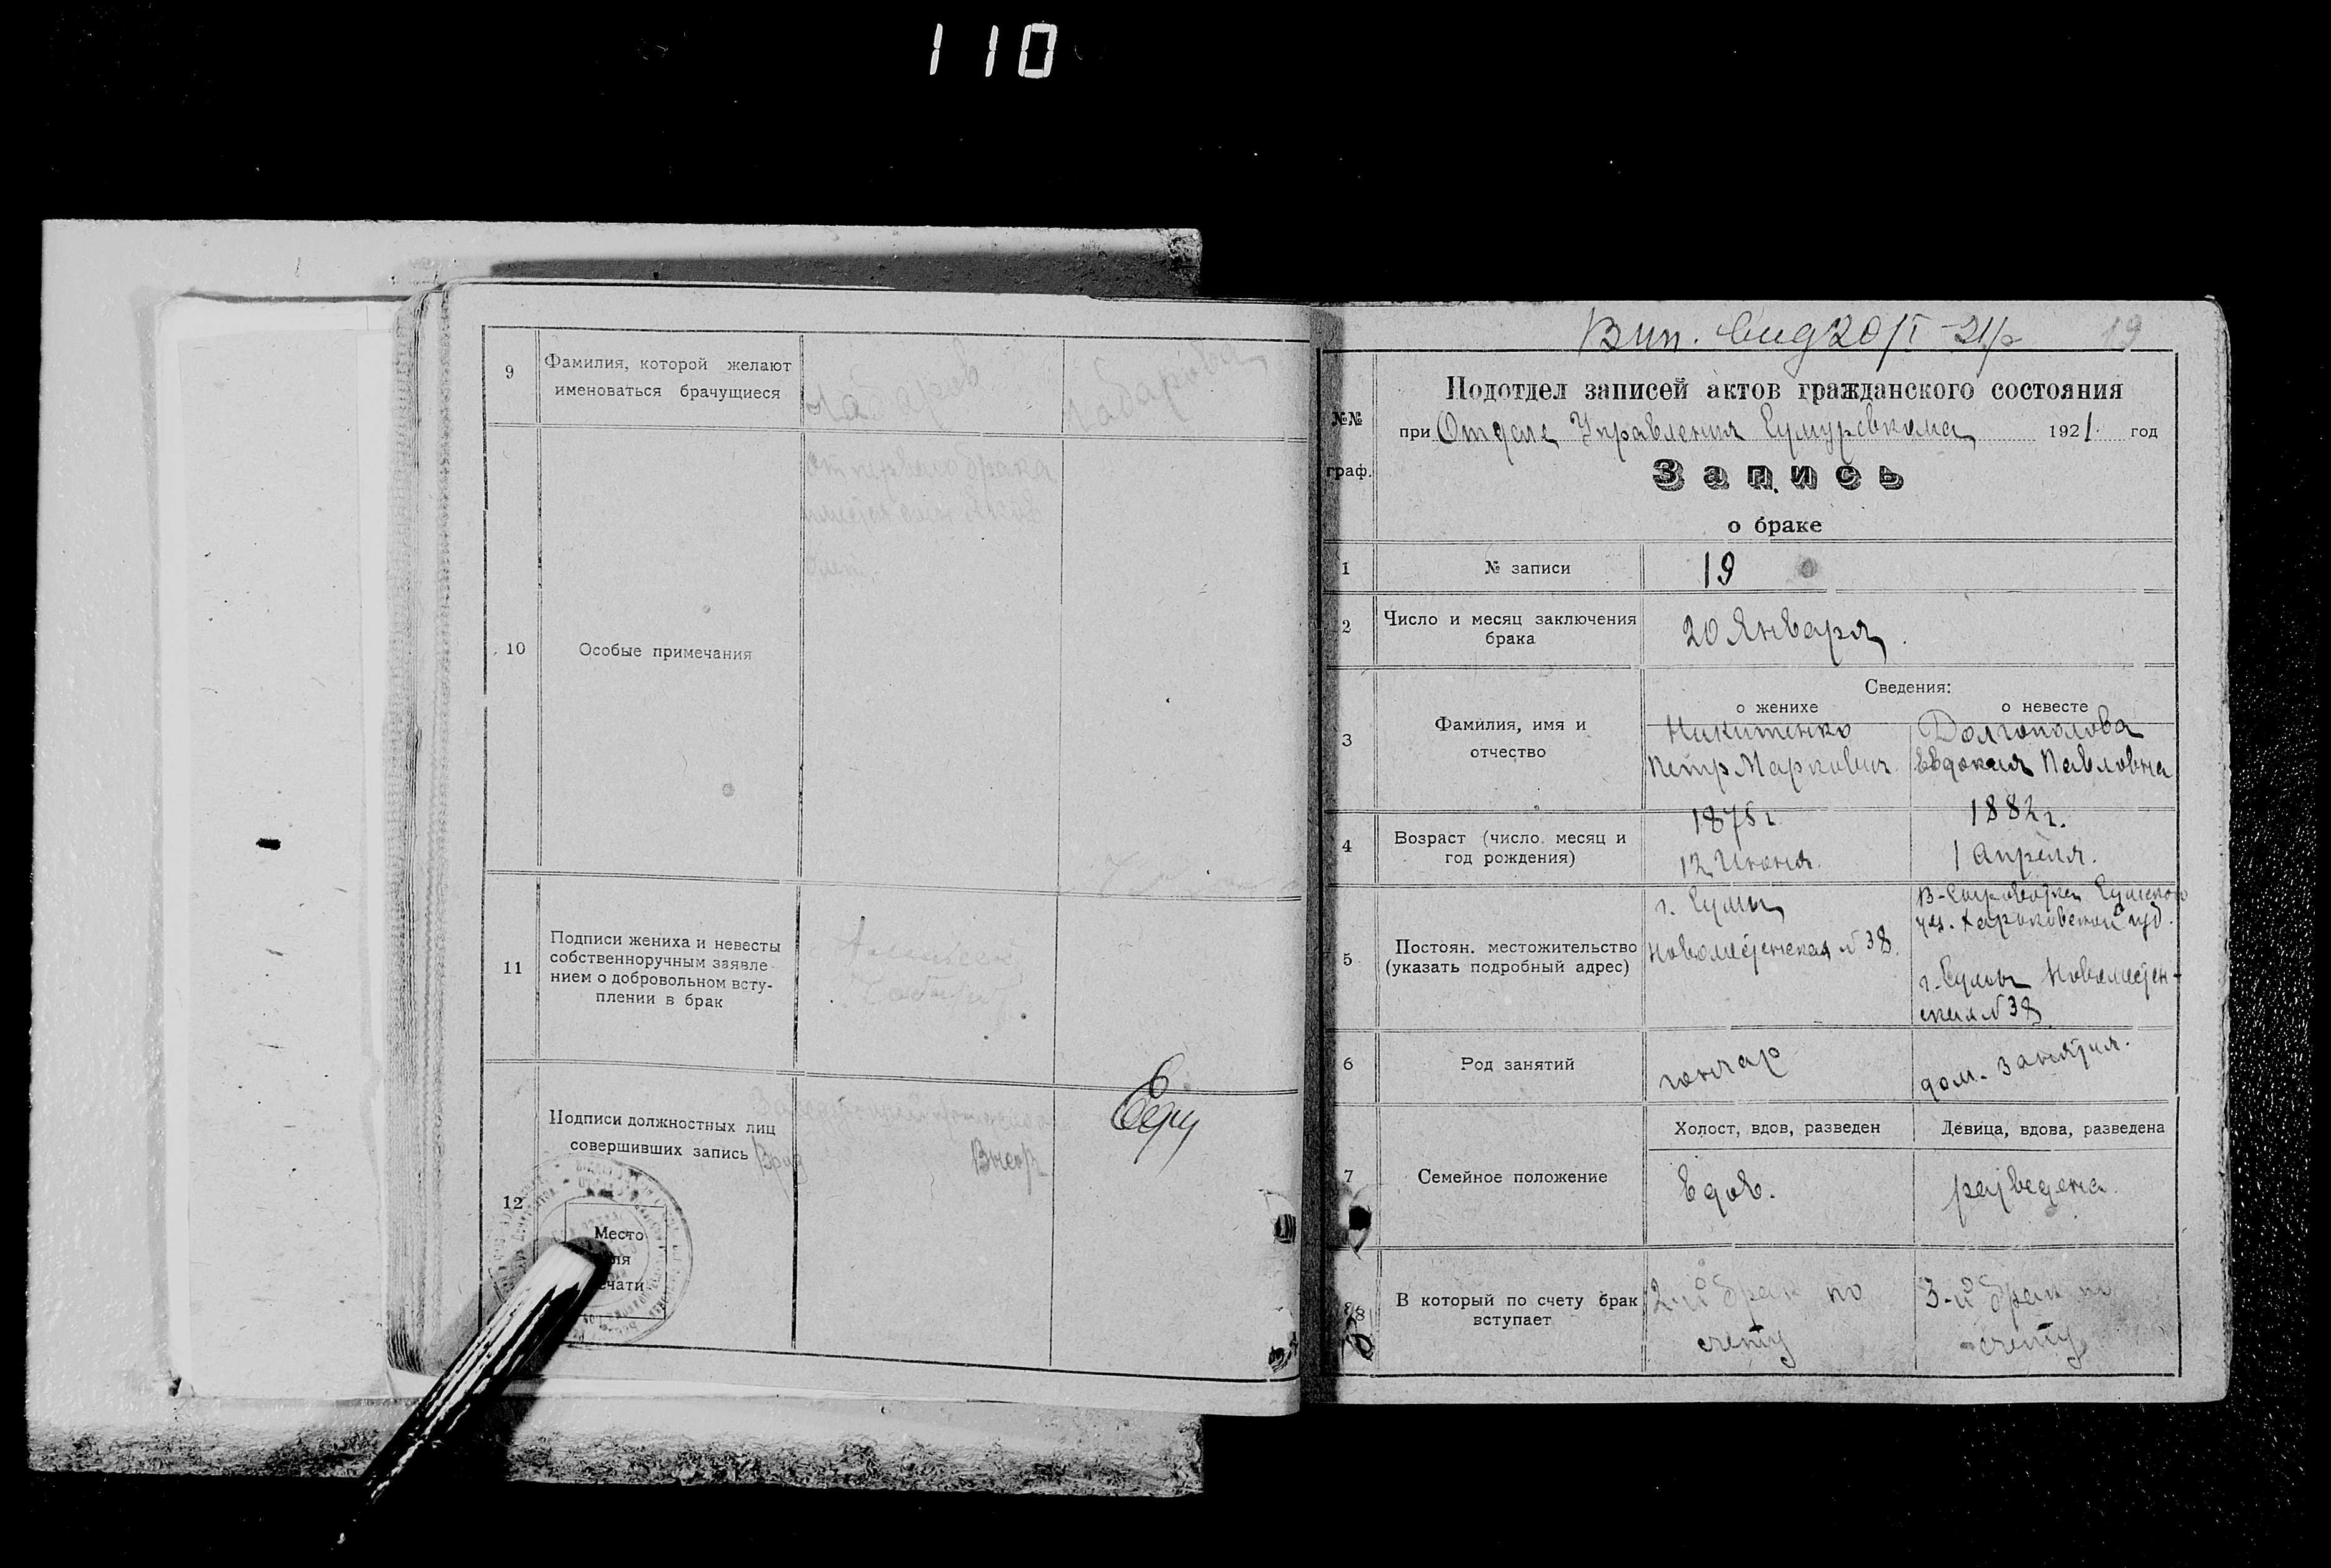 110
9
Фамилия, которой желают
именоваться брачущиеся
Чабарова
От первого брака
10
Особые примечания
11
Подписи жениха и невесты
собственноручным заявле-
нием о добровольном всту-
плении в брак
12
Подписи должностных лиц
совершивших запись
Место
для
печати
Вып. 20/I-21р
19
№№
граф.
Подотдел записей актов гражданского состояния
при Отделе Управления Сумуревкома 1921 год
Запись
о браке
1
№ записи
19
2
Число и месяц заключения
брака
20 Января
Сведения:
о женихе
о невесте
3
Фамилия, имя и
отчество
Никитенко
Петр Маркович
Долгополова
Евдокия Павловна
4
Возраст (число, месяц и
год рождения)
1875 г.
12 Июня.
1882 г.
1 Апреля.
5
Постоян. местожительство
(указать подробный адрес)
г. Сумы
Новоместенская № 38.
В-Сыроватка Сумского
уез. Харьковской губ.
г. Сумы Новоместен-
ская № 38
6
Род занятий
гончар
дом. занятия.
7
Семейное положение
Холост, вдов, разведен
Девица, вдова, разведена
Вдов.
разведена.
8
В который по счету брак
вступает
2-й брак по
счету
3-й брак по
счету